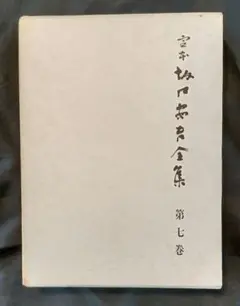 定本
坂口安吾全集
第七巻